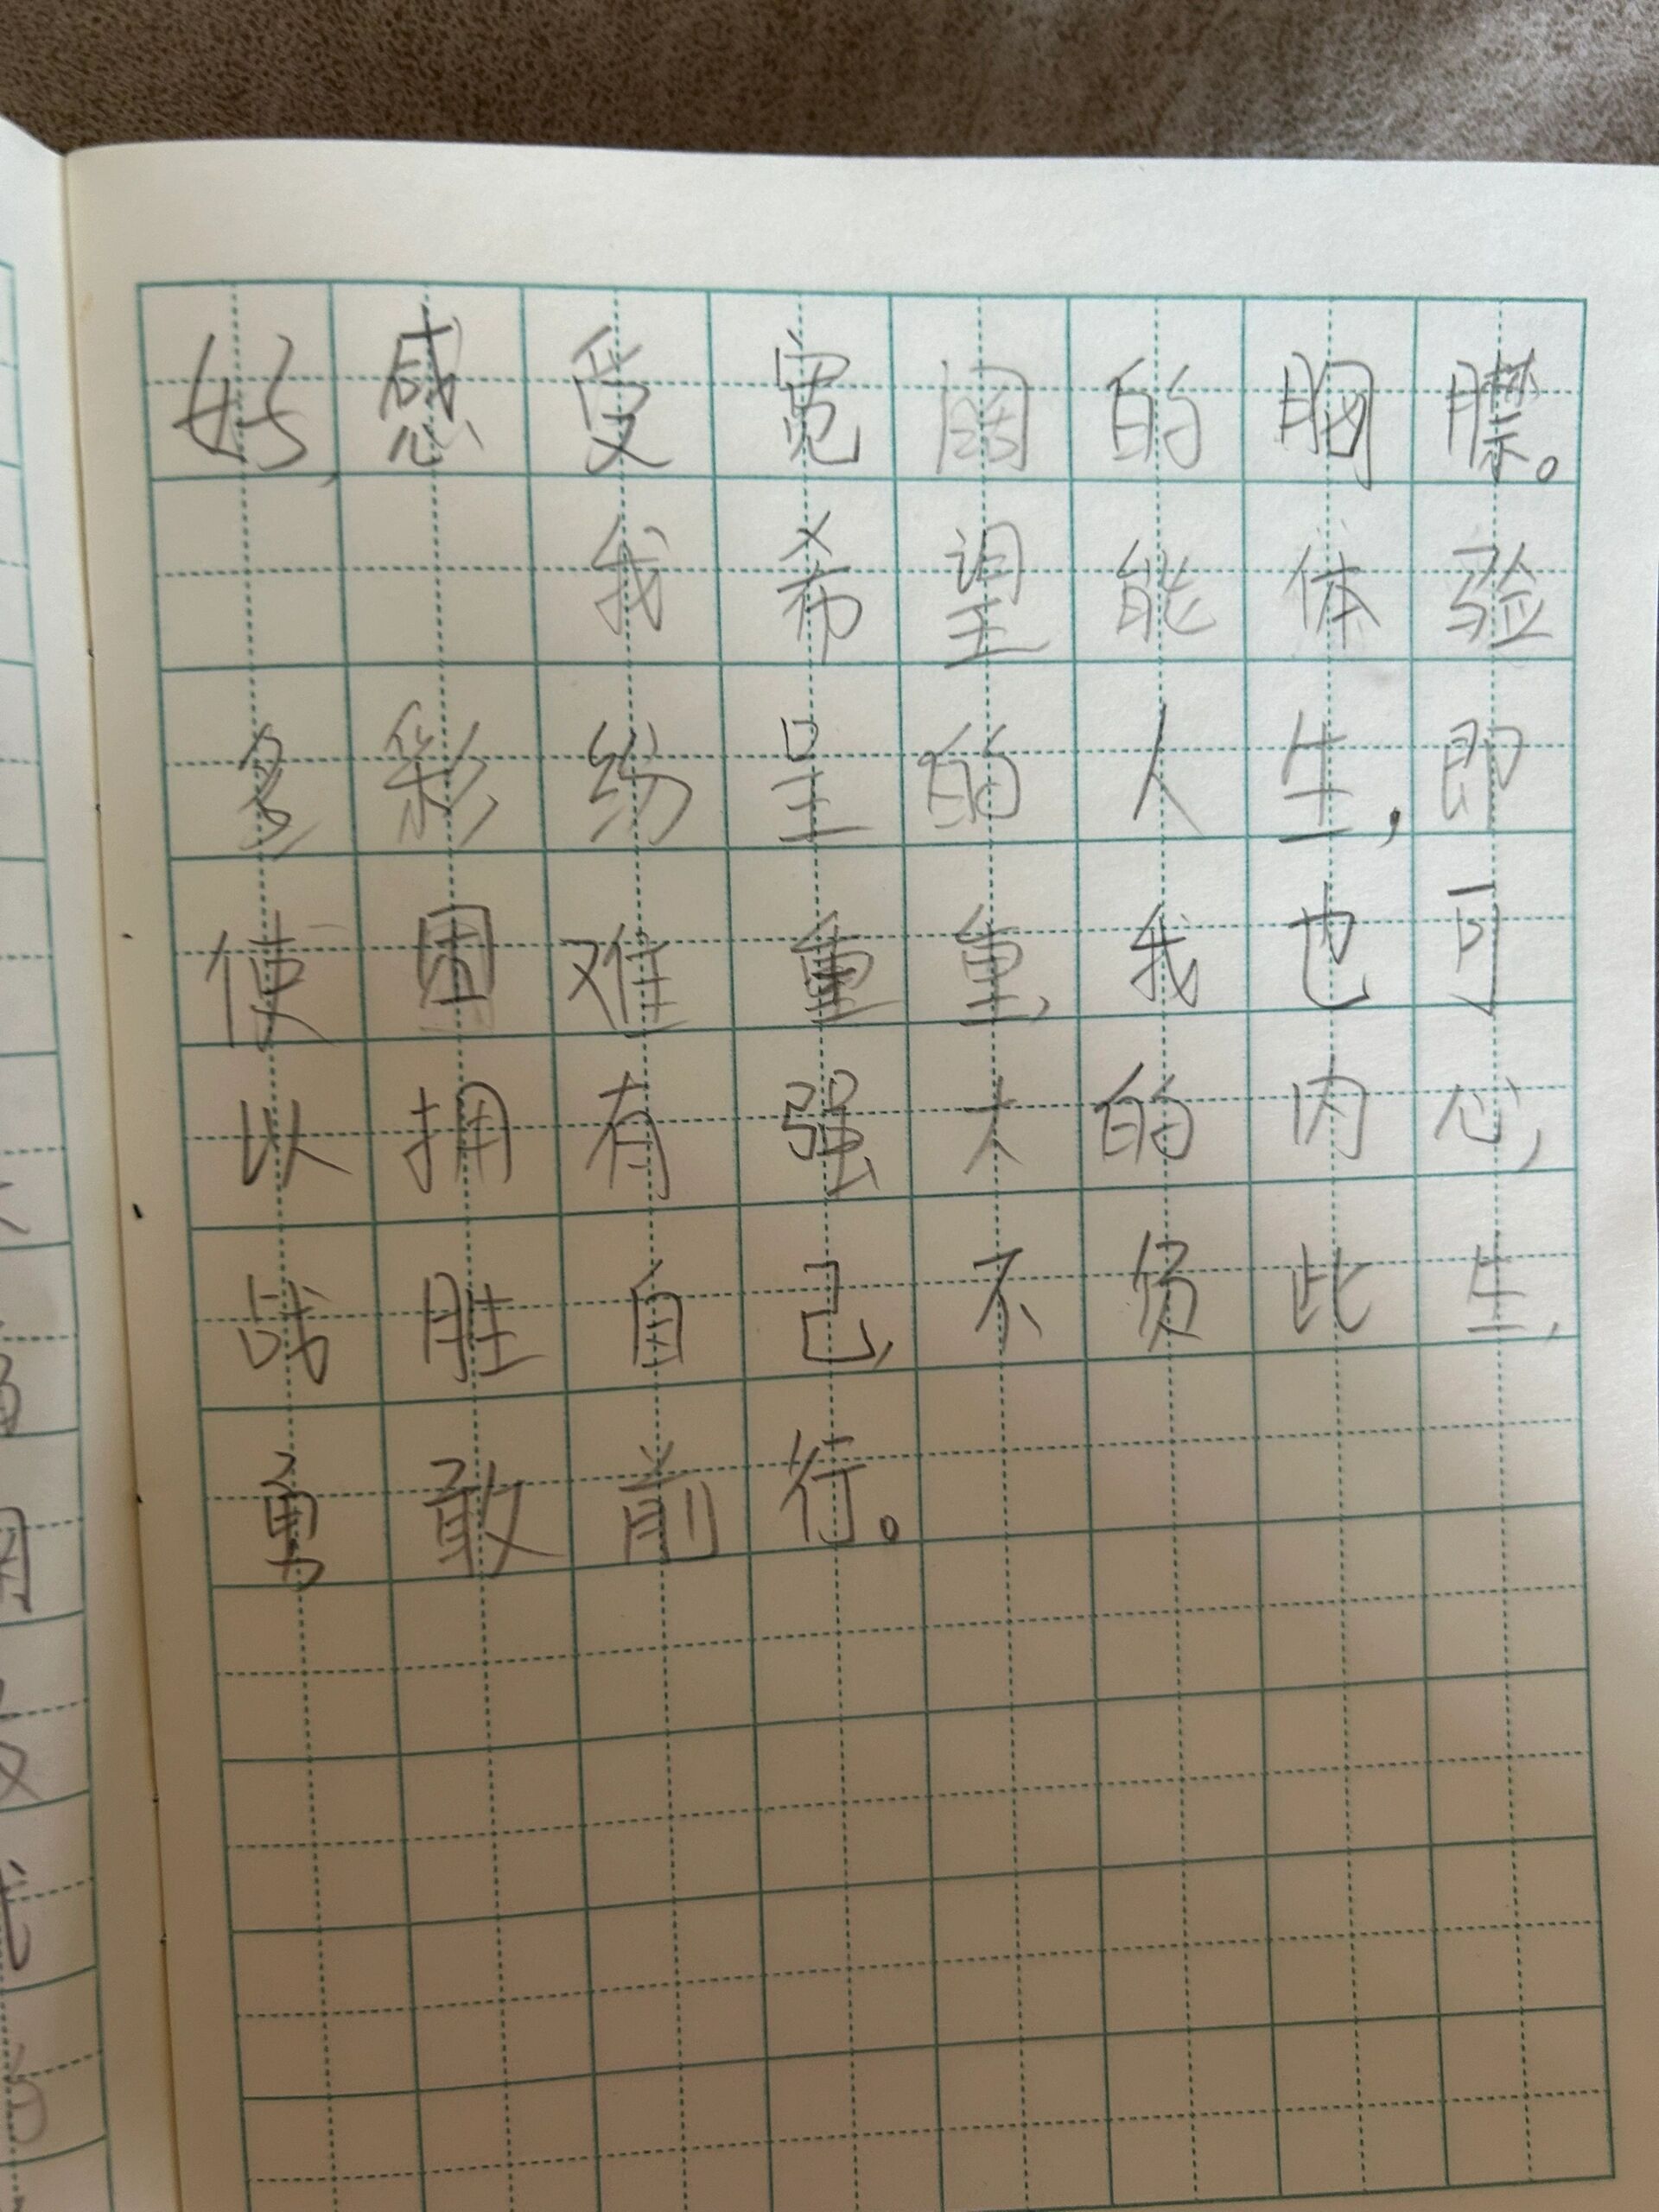 好,感受宽阔的胸襟。
我希望能体验
多彩纷呈的人生,即
使困难重重,我也可
以拥有强大的内心,
战胜自己,不负此生,
勇敢前行。